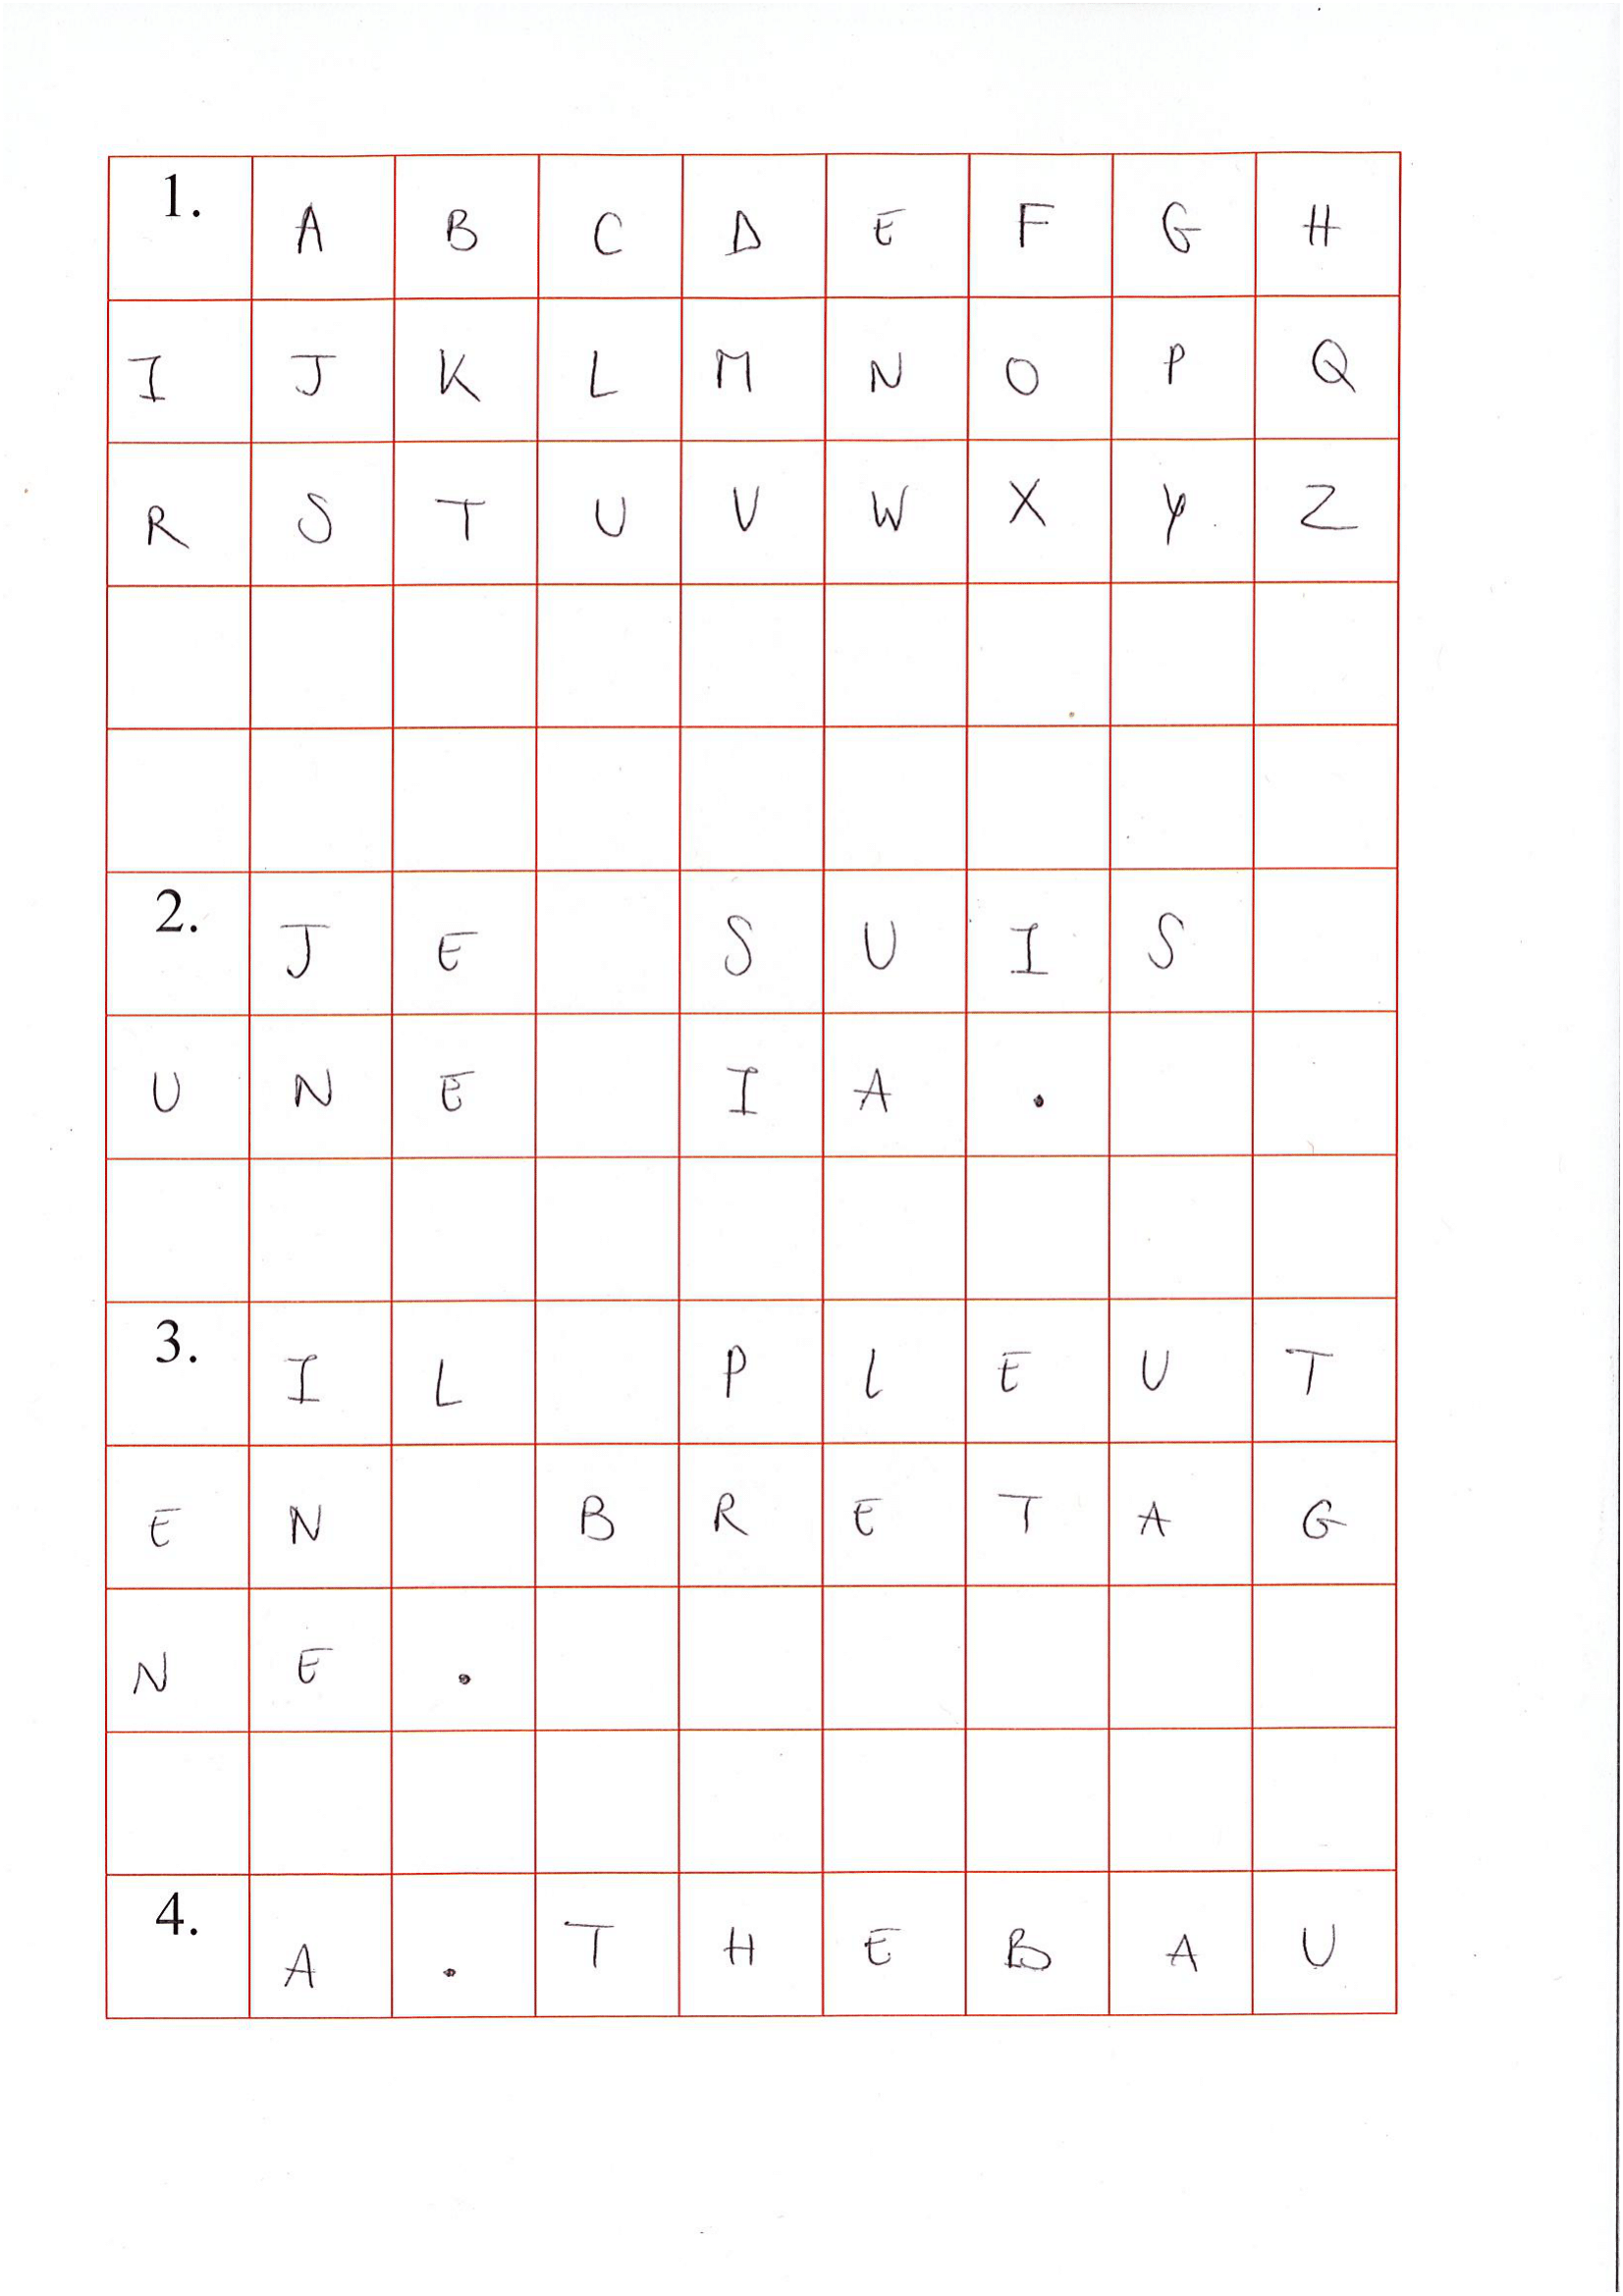 1. A B C D E F G H
I J K L M N O P Q
R S T U V W X Y Z
2. J E S U I S
U N E I A .
3. I L P L E U T
E N B R E T A G
N E .
4. A . T H E B A U